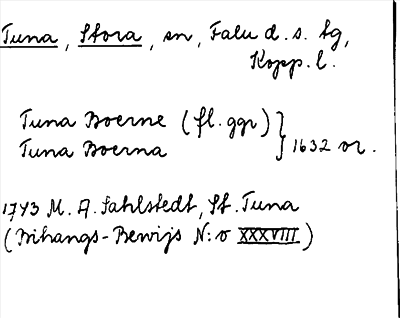 Tuna, Stora, sn, Falu d. s. tg,
Kopp. l.
Tuna Boerne (fl. ggr)
Tuna Boerna } 1632 or.
1743 M. A. Sahlstedt, St. Tuna
(Bihangs-Bewijs N:o XXXVIII)